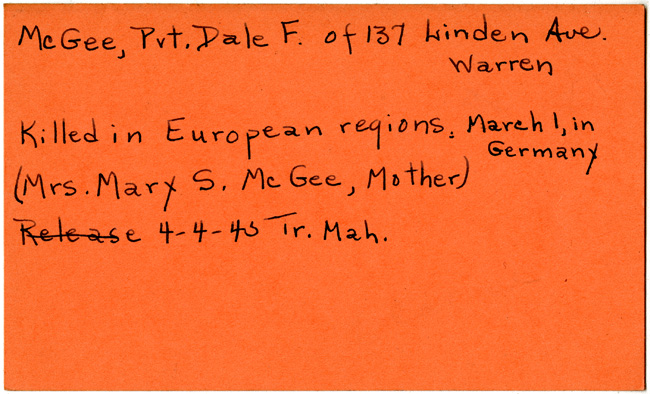 McGee, Pvt. Dale F. of 137 Linden Ave.
Warren
Killed in European regions. March 1, in
Germany
(Mrs. Mary S. McGee, Mother)
Release 4-4-45 Tr. Mah.